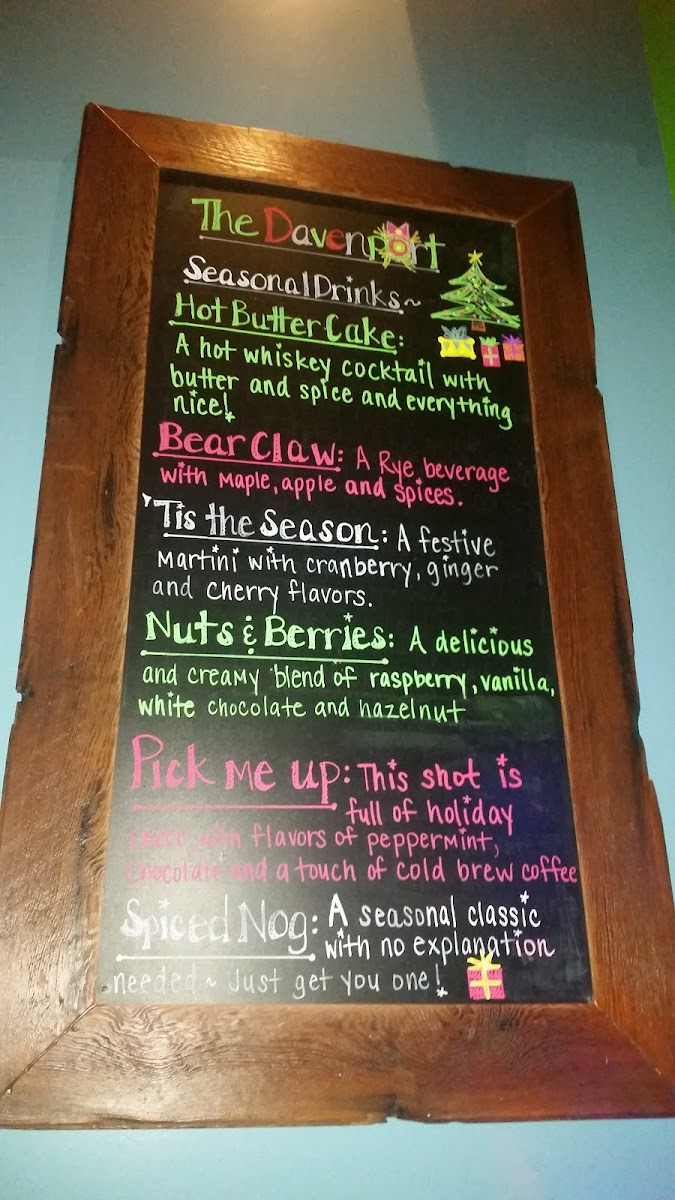 The Davenport
Seasonal Drinks~
Hot Butter Cake:
A hot whiskey cocktail with
butter and spice and everything
nice!
Bear Claw: A Rye beverage
with Maple, apple and spices.
'Tis the Season: A festive
Martini with cranberry, ginger
and cherry flavors.
Nuts & Berries: A delicious
and creamy blend of raspberry, vanilla,
white chocolate and hazelnut
Pick Me up: This shot is
full of holiday
cheer with flavors of peppermint,
chocolate and a touch of cold brew coffee
Spiced Nog: A seasonal classic
with no explanation
needed~ Just get you one!